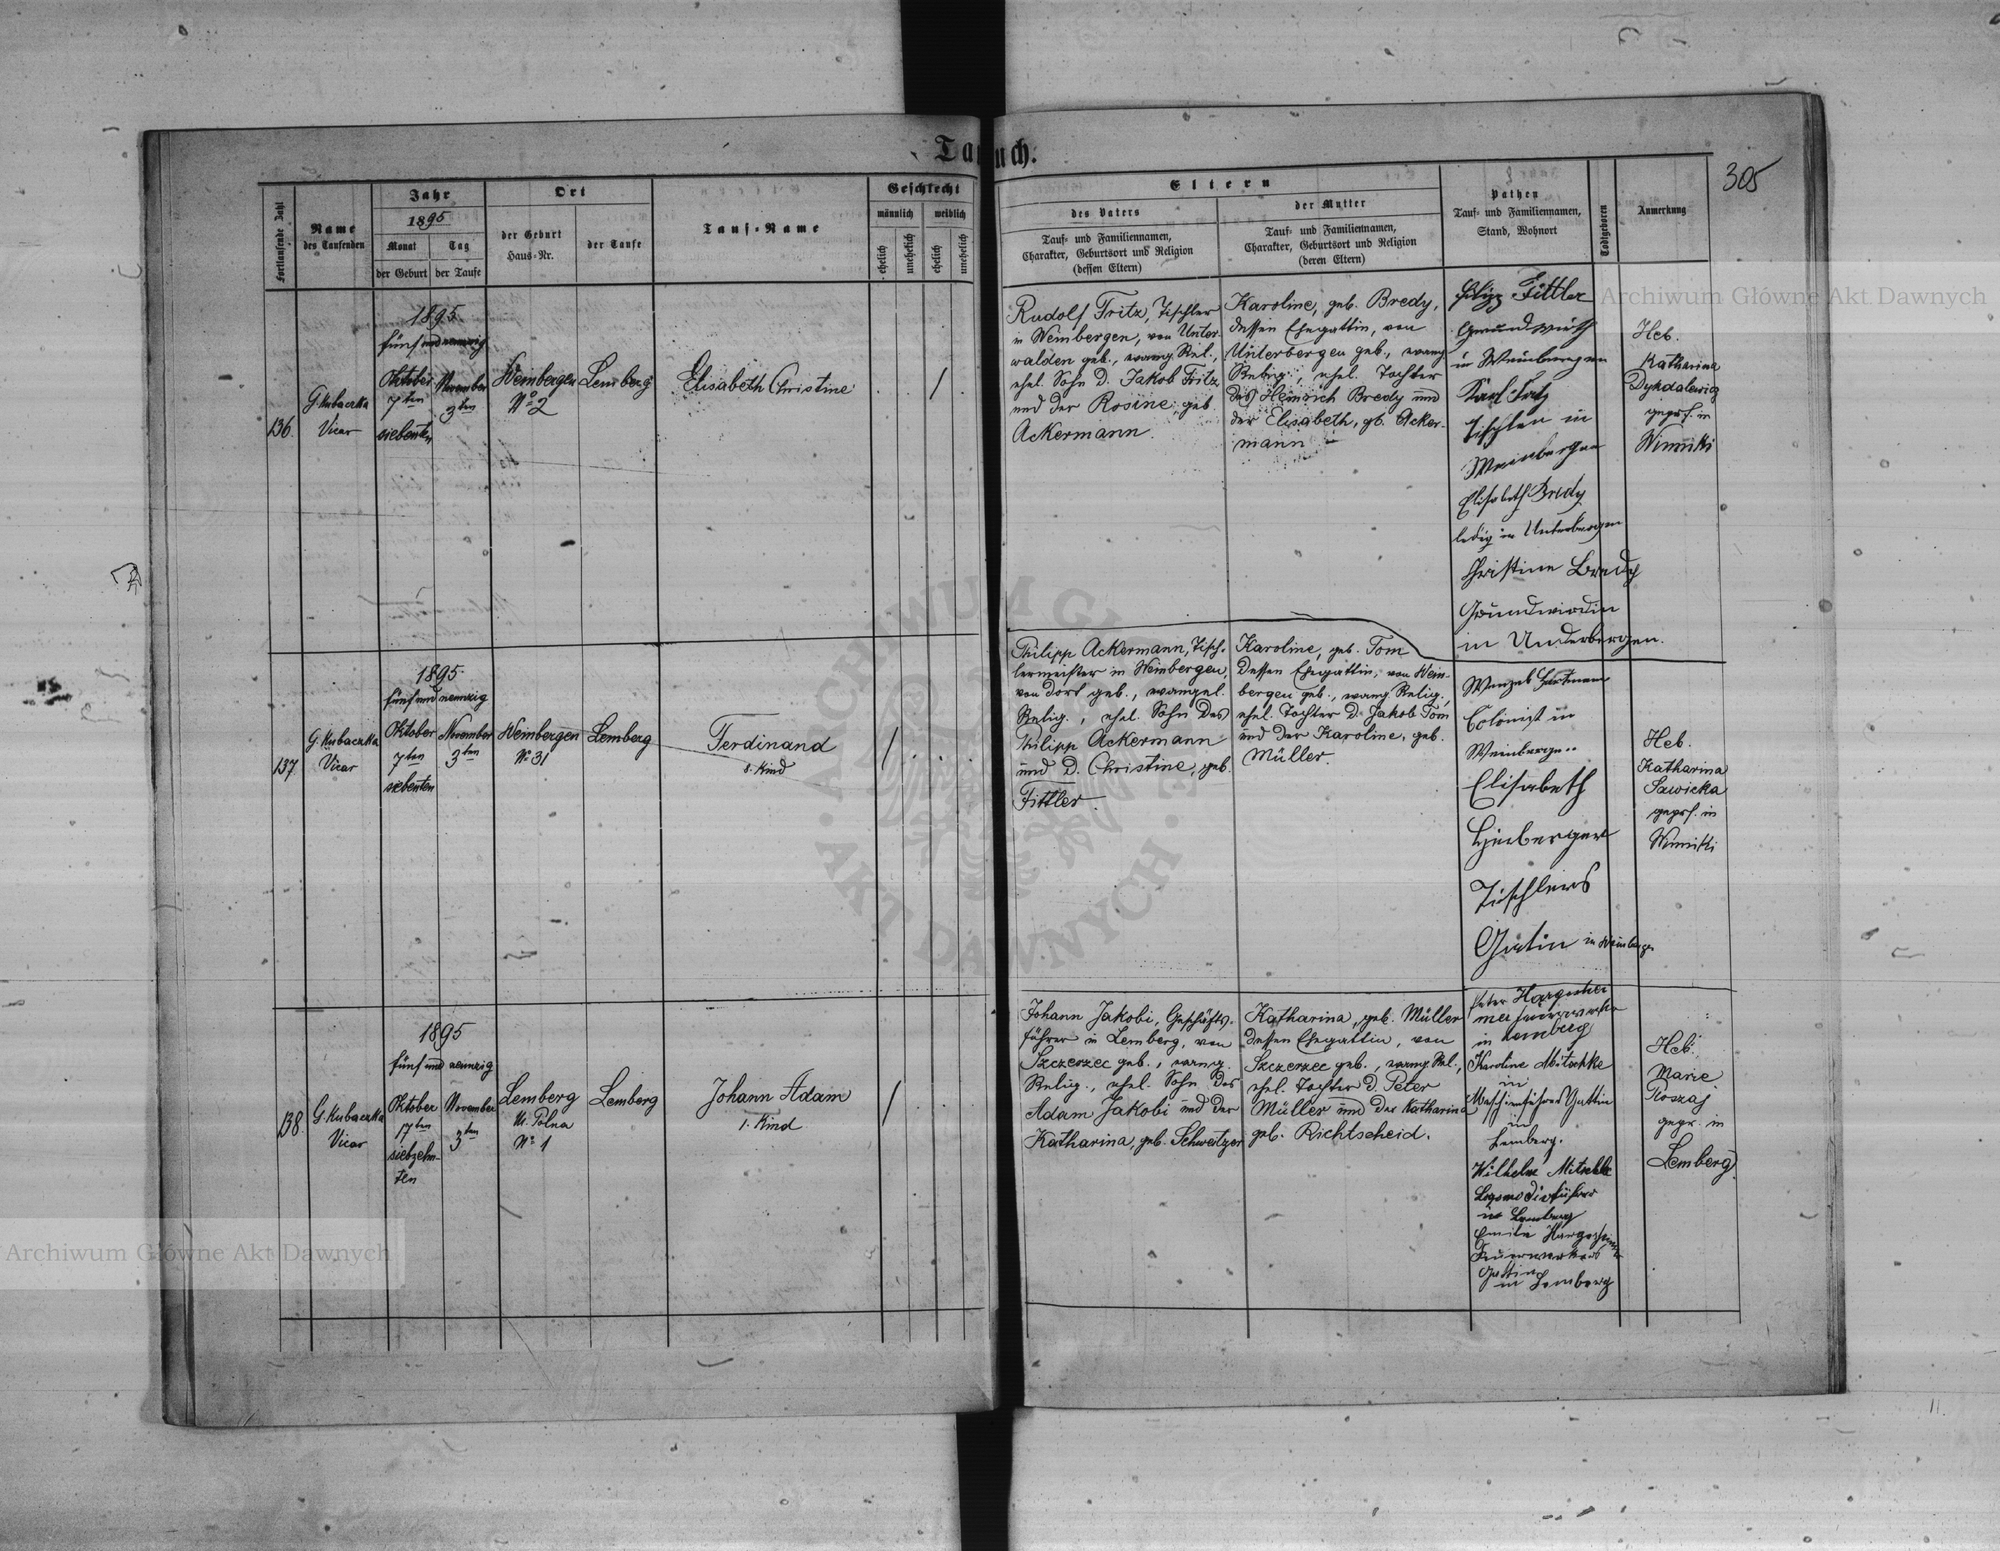 Taufbuch.
305
Fortlaufende Zahl
Name
des Taufenden
Jahr
1895
Monat
Tag
der Geburt
der Taufe
Ort
der Geburt
Haus-Nr.
der Taufe
Tauf-Name
Geschlecht
männlich
weiblich
ehelich
unehelich
ehelich
unehelich
Eltern
des Vaters
Tauf- und Familiennamen,
Charakter, Geburtsort und Religion
(dessen Eltern)
der Mutter
Tauf- und Familiennamen,
Charakter, Geburtsort und Religion
(deren Eltern)
Pathen
Tauf- und Familiennamen,
Stand, Wohnort
Todtgeboren
Anmerkung
136.
G. Kubaczka
Vicar
1895.
fünf und neunzig
Oktober
7ten
siebenten
November
3ten
Weinbergen
No 2
Lemberg
Elisabeth Christine
/
Rudolf Fritz, Tischler
in Weinbergen, von Unter-
walden geb., evang. Rel.,
ehel. Sohn d. Jakob Fritz
und der Rosine, geb.
Ackermann.
Karoline, geb. Bredy,
dessen Ehegattin, von
Unterbergen geb., evang.
Relig., ehel. Tochter
des Heinrich Bredy und
der Elisabeth, gb. Acker-
mann
Filipp Fittler
Grundwirth
in Weinbergen
Karl Fritz
Tischler in
Weinbergen
Elisabeth Bredy
ledig in Unterbergen
Christine Bredy
Grundwirdin
in Underbergen.
Heb.
Katharina
gepr. in
Winniki
137
G. Kubaczka
Vicar
1895.
fünf und neunzig
Oktober
7ten
siebenten
November
3ten
Weinbergen
No 31
Lemberg
Ferdinand
8. Kind
/
Philipp Ackermann, Tisch-
lermeister in Weinbergen,
von dort geb., evangel.
Relig., ehel. Sohn des
Philipp Ackermann
und d. Christine, geb.
Fittler.
Karoline, geb. Tom
dessen Ehegattin, von Wein-
bergen geb., evang. Relig.,
ehel. Tochter d. Jakob Tom
und der Karoline, geb.
Müller.
Colonist in
Weinbergen
Elisabeth
Tischlers
Gatin in Weinbergen
Heb.
Katharina
Sawicka
gepr. in
Winniki
138.
G. Kubaczka
Vicar
1895
fünf und neunzig
Oktober
17ten
siebzehn-
ten
November
3ten
Lemberg
Ul. Polna
No 1
Lemberg
Johann Adam
1. Kind
/
Johann Jakobi, Geschäfts-
führer in Lemberg, von
Szczerzec geb., evang.
Relig., ehel. Sohn des
Adam Jakobi und der
Katharina, geb. Schweitzer
Katharina, geb. Müller
dessen Ehegattin, von
Szczerzec geb., evang. Rel.,
ehel. Tochter d. Peter
Müller und der Katharina
geb. Richtscheid.
Peter Hargeshei
mer Feuerwerker
in Lemberg
Karoline Mitschke
in
Maschinführer Gattin
in
Lemberg.
Wilhelm Mitschke
in Lemberg
Emilie Hargesheimer
Feuerwerkers
Gattin
in Lemberg
Heb.
Marie
gepr. in
Lemberg.
Archiwum Główne Akt Dawnych
Archiwum Główne Akt Dawnych
ARCHIWUM GŁÓWNE
AKT DAWNYCH